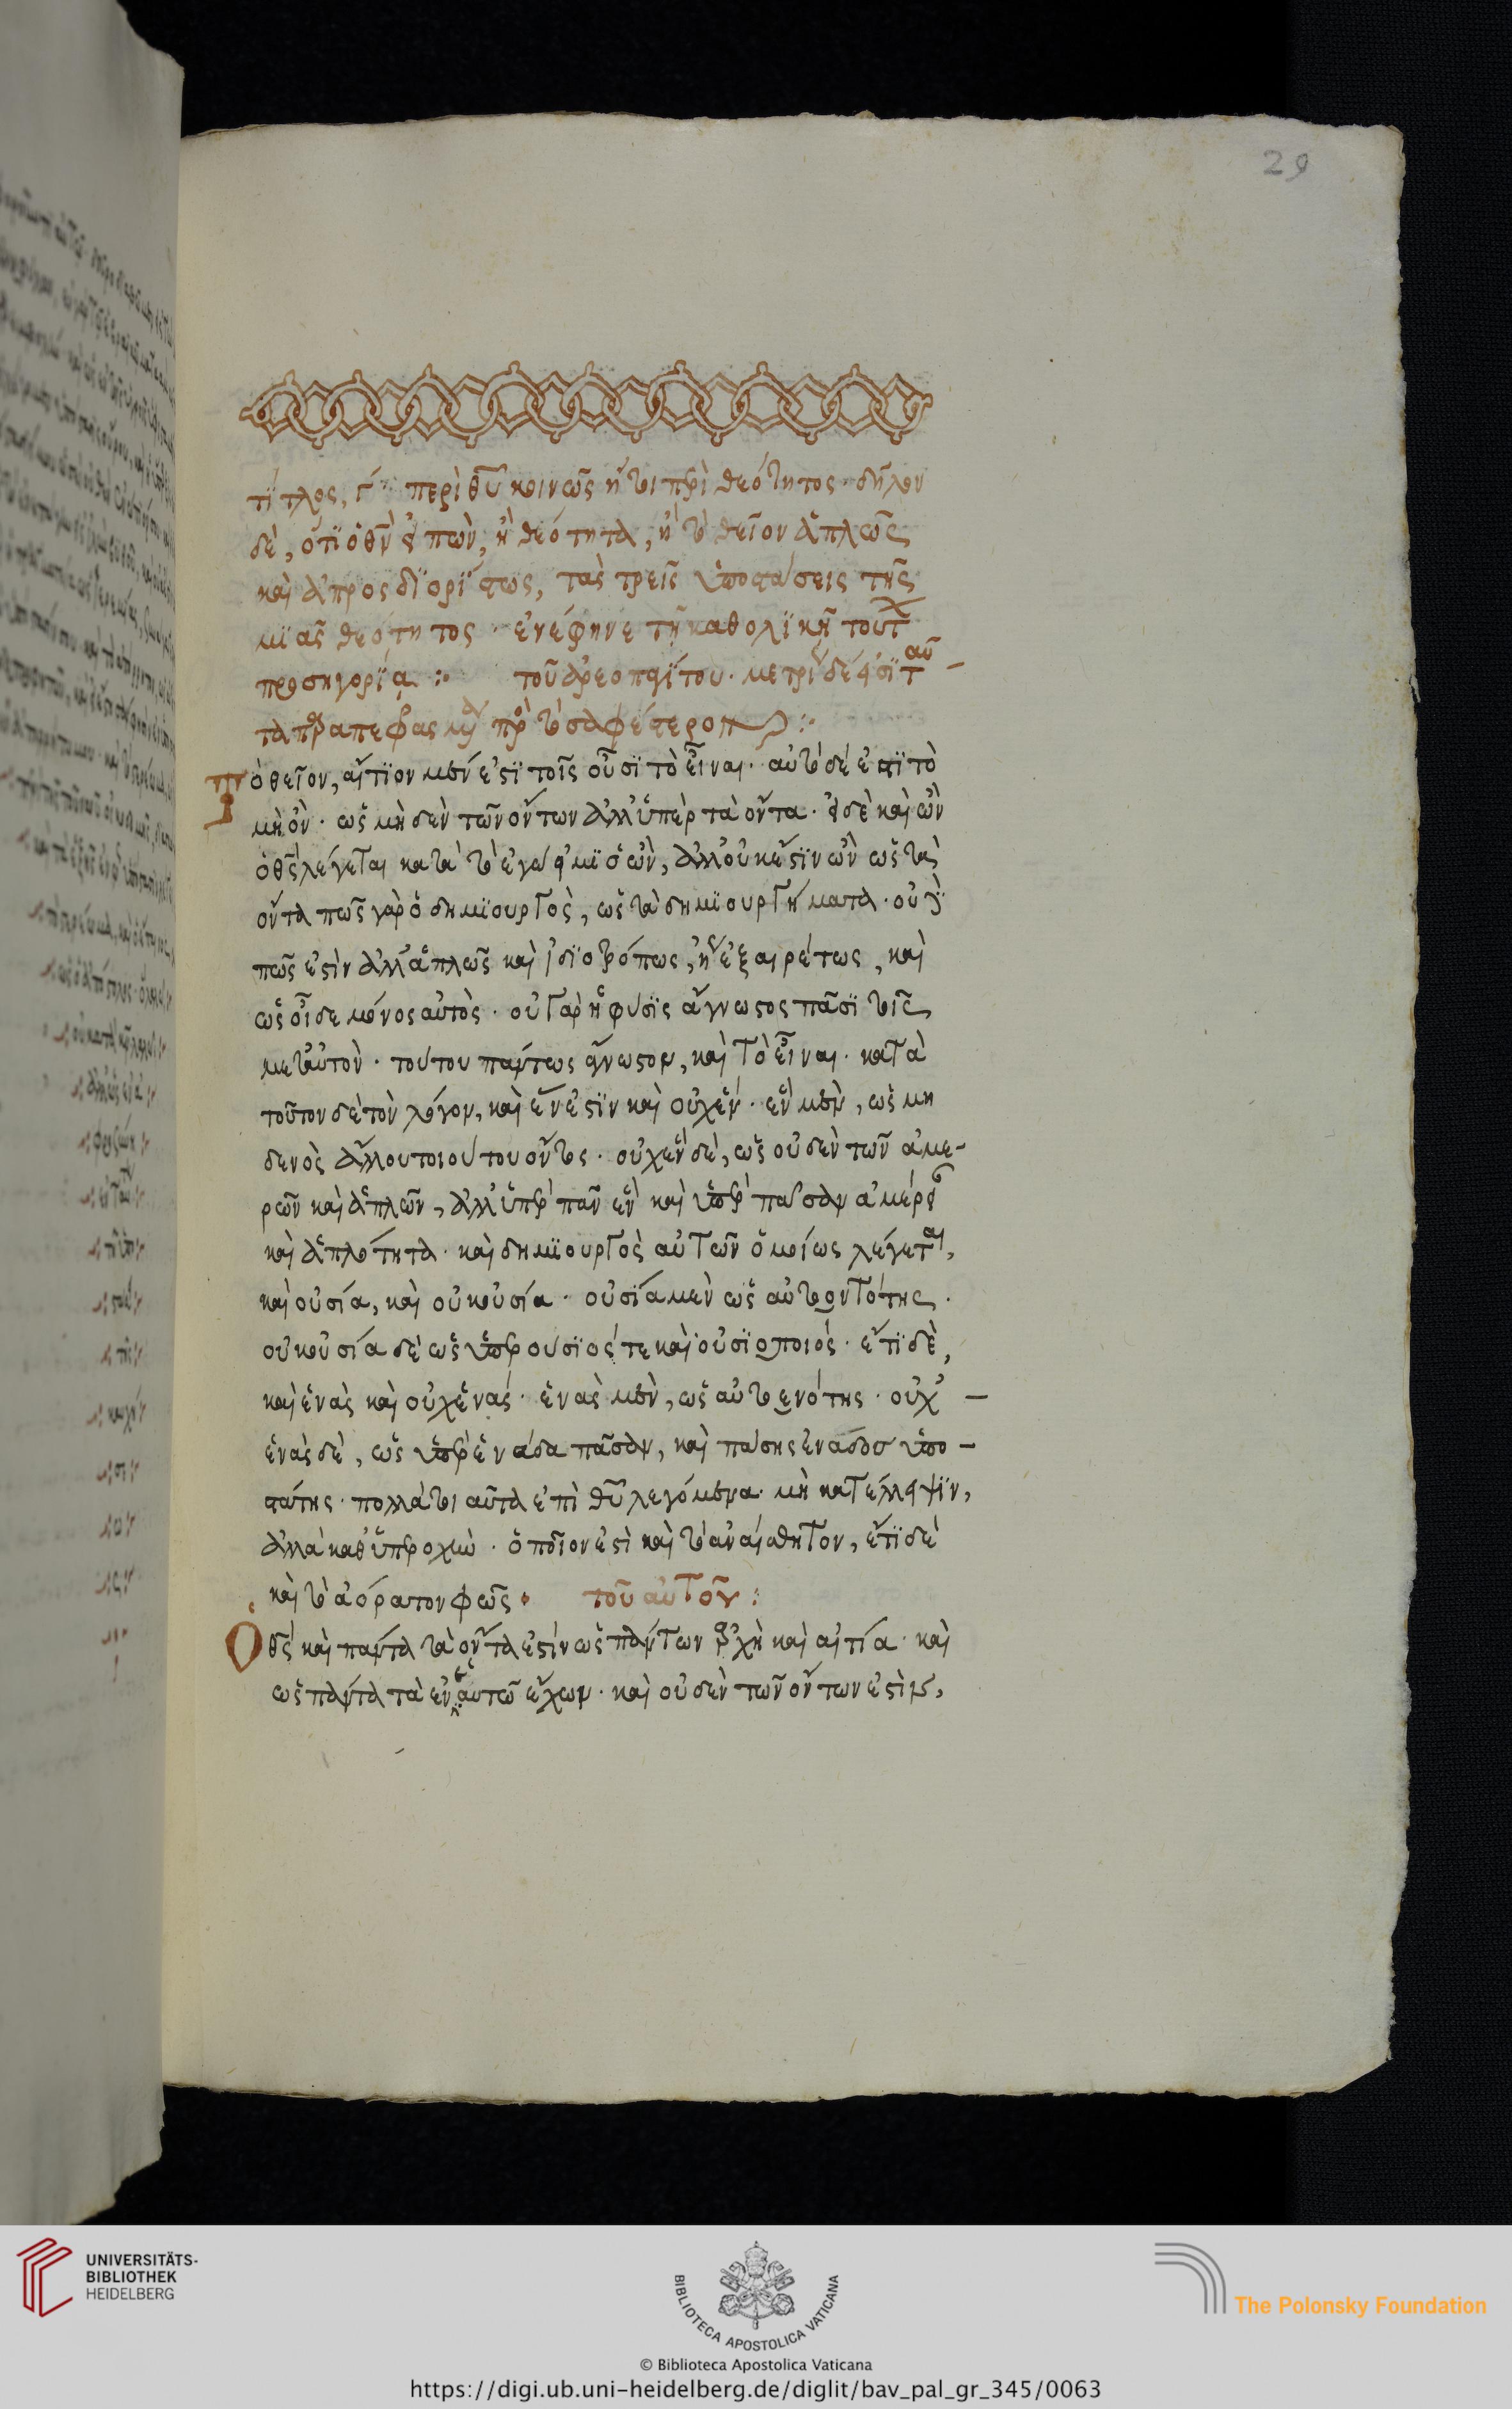 29
τίτλος, γ´ περὶ θῦ κοινῶς ἤτοι περὶ θεότητος· δῆλον
δὲ, ὅτι ὁ θν̄ εἰπὼν, ἢ θεότητα, ἢ τὸ θεῖον ἁπλῶς
καὶ ἀπροσδιορίστως, τὰς τρεῖς ὑποστάσεις τῆς
μϊᾶς θεότητος ἐνέφηνε τῆ καθολϊκῆ
προσηγορία : τοῦ ἀρεοπαγίτου·
πρὸς τὸ σαφέστερον
Τὸ θεῖον, αἴτϊον μὲν ἐστῒ τοῖς οὖσϊ τὸ εἶναι· αὐτὸ δέ ἐστϊ τὸ
μὴ ὂν· ὡς μὴδὲν τῶν ὄντων ἀλλ' ὑπὲρ τὰ ὄντα· εἰ δὲ καὶ ὢν
ὁ θς̄ λέγεται κατὰ τὸ ἐγώ εἰμϊ ὁ ὢν, ἀλλ' οὐκ ἔστϊν ὢν ὡς τὰ
ὄντα πῶς γὰρ ὁ δημϊουργὸς, ὡς τὰ δημϊουργήματα· οὐδὲ
πῶς ἐστὶν ἀλλ' ἁπλῶς καὶ ἰδϊοτρόπως, καὶ ἐξαιρέτως, καὶ
ὡς οἶδε μόνος αὐτὸς· οὗ γὰρ ἡ φύσϊς ἄγνωστος πᾶσϊ τοῖς
μετ' αὐτὸν· τούτου πάντως ἄγνωστον, καὶ τὸ εἶναι· κατὰ
τοῦτον δὲ τὸν λόγον, καὶ ἕν ἐστϊν καὶ οὐχ ἕν· ἓν μὲν, ὡς μη
δενὸς ἄλλου τοιούτου ὄντος· οὐχ ἓν δὲ, ὡς οὐδὲν τῶν ἀμε-
ρῶν καὶ ἁπλῶν, ἀλλ' ὑπὲρ πᾶν ἓν καὶ ὑπὲρ πᾶσαν ἀμέρειαν
καὶ ἁπλότητα· καὶ δημϊουργὸς αὐτῶν ὁμοίως λέγεται,
καὶ οὐσία, καὶ οὐκ οὐσία· οὐσΐα μὲν ὡς αὐτοοντότης·
οὐκ οὐσία δὲ ὡς ὑπερούσϊός τε καὶ οὐσϊοποιός· ἔτϊ δὲ,
καὶ ἑνὰς καὶ οὐχ ἑνάς· ἑνὰς μὲν, ὡς αὐτοενότης· οὐχ –
ἑνὰς δὲ, ὡς ὑπὲρ ἑνάδα πᾶσαν, καὶ πάσης ἑνάδος ὑπο –
στάτης· πολλὰ τοιαῦτα ἐπὶ θῦ λεγόμενα· μὴ κατ' ἔλλειψϊν,
ἀλλὰ καθ' ὑπεροχὴν· ὁποῖον ἐστὶ καὶ τὸ ἀναίσθητον, ἔτϊ δέ
καὶ τὸ ἀόρατον φῶς· τοῦ αὐτοῦ :
Ὁ θς̄ καὶ πάντα τὰ ὄντα ἐστίν ὡς πάντων ἀρχὴ καὶ αἰτία· καὶ
ὡς πάντα τὰ ἐν ἑαυτῶ ἔχων· καὶ οὐδὲν τῶν ὄντων ἐστὶν,
UNIVERSITÄTS-
BIBLIOTHEK
HEIDELBERG
BIBLIOTECA APOSTOLICA VATICANA
The Polonsky Foundation
© Biblioteca Apostolica Vaticana
https://digi.ub.uni-heidelberg.de/diglit/bav_pal_gr_345/0063